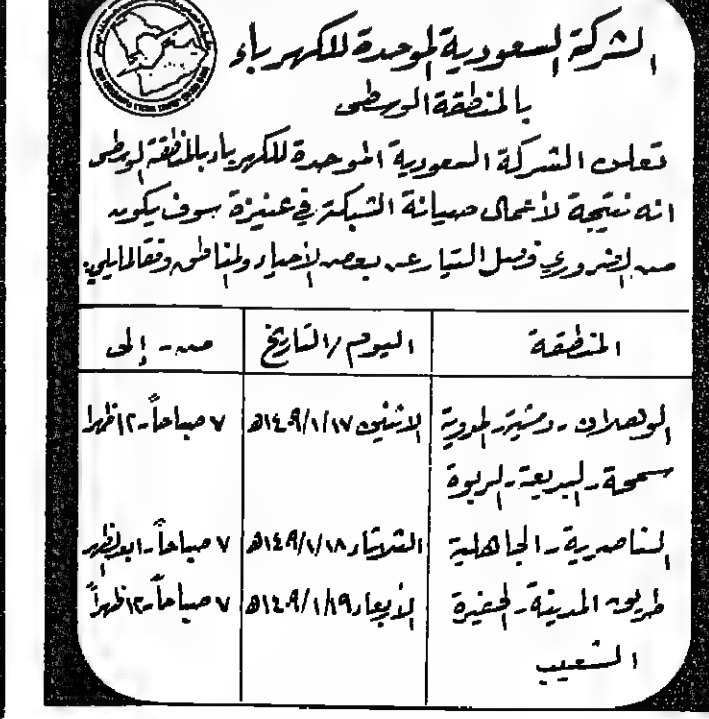 الشركة السعودية الموحدة للكهرباء
بالمنطقة الوسطى
تعلن الشركة السعودية الموحدة للكهرباء بالمنطقة الوسطى
انه نتيجة لأعمال صيانة الشبكة في عنيزة سوف يكون
من الضروري فصل التيار عن بعض الأحياء والمناطق وفقا لمايلي:
المنطقة اليوم/التاريخ من - إلى
الوهلان - دمشية - البدوية الاثنين ١٤٠٩/١/١٧هـ ٧ صباحاً-١٢ظهرا
سمحة - البديعة - الربوة
الناصرية - الجاهلية الثلاثاء ١٤٠٩/١/١٨هـ ٧ صباحاً-١بعدالظهر
طريق المدينة - الحفيرة الأربعاء ١٤٠٩/١/١٩هـ ٧ صباحاً-١٢ظهراً
الشعيب